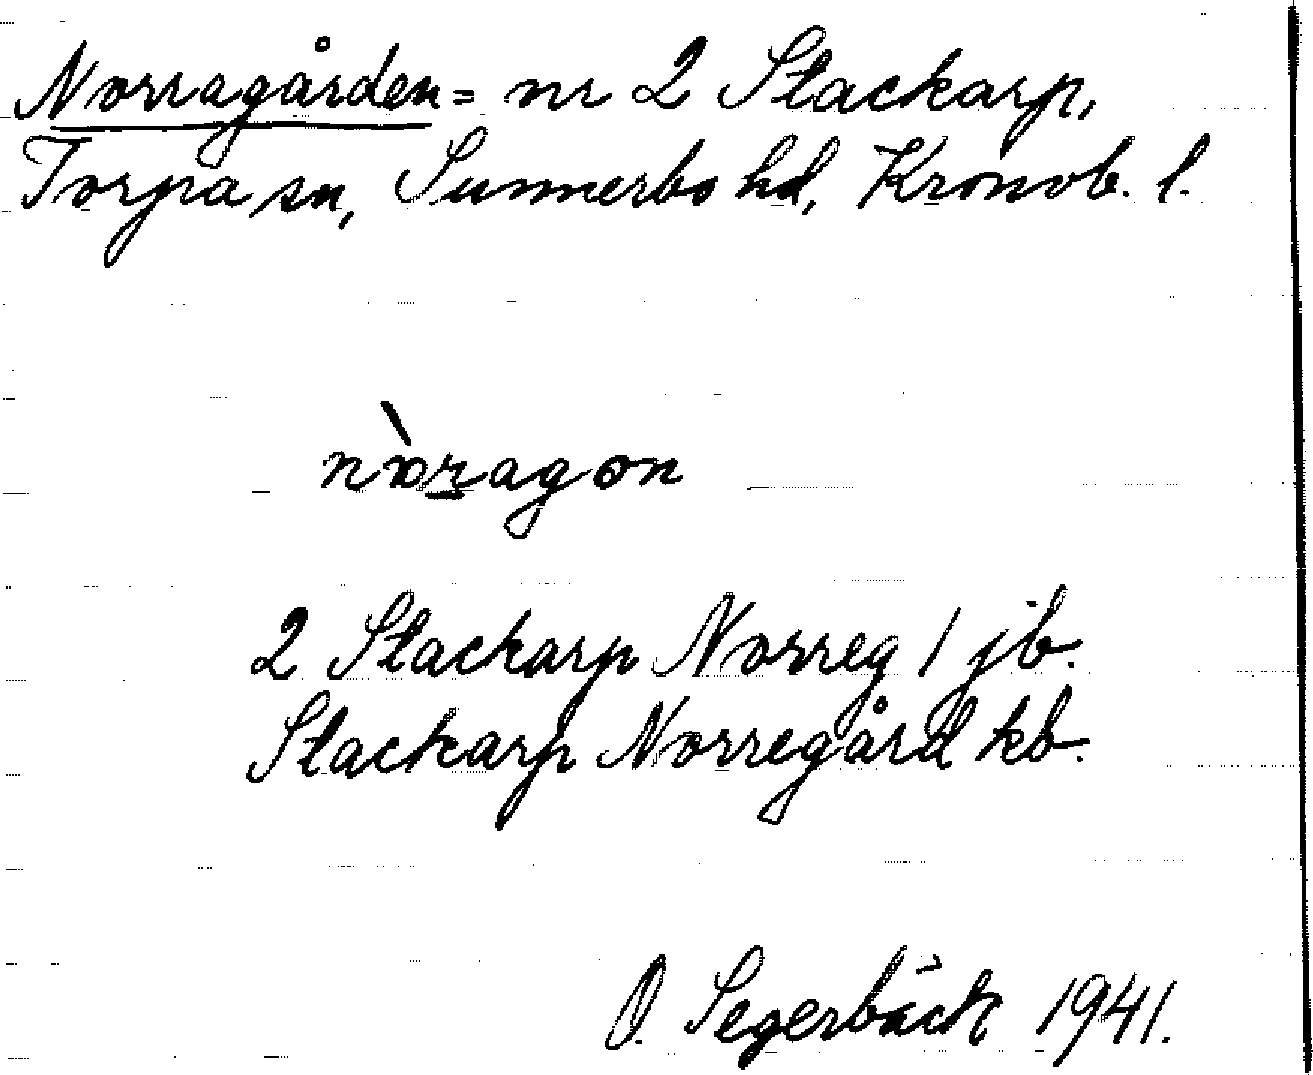 Norragården = nr 2 Slackarp,
Torpa sn, Sunnerbo hd, Kronob. l.
nòragon
2 Slackarp Norreg 1 jb.
Slackarp Norregård kb.
O. Segerbäck 1941.